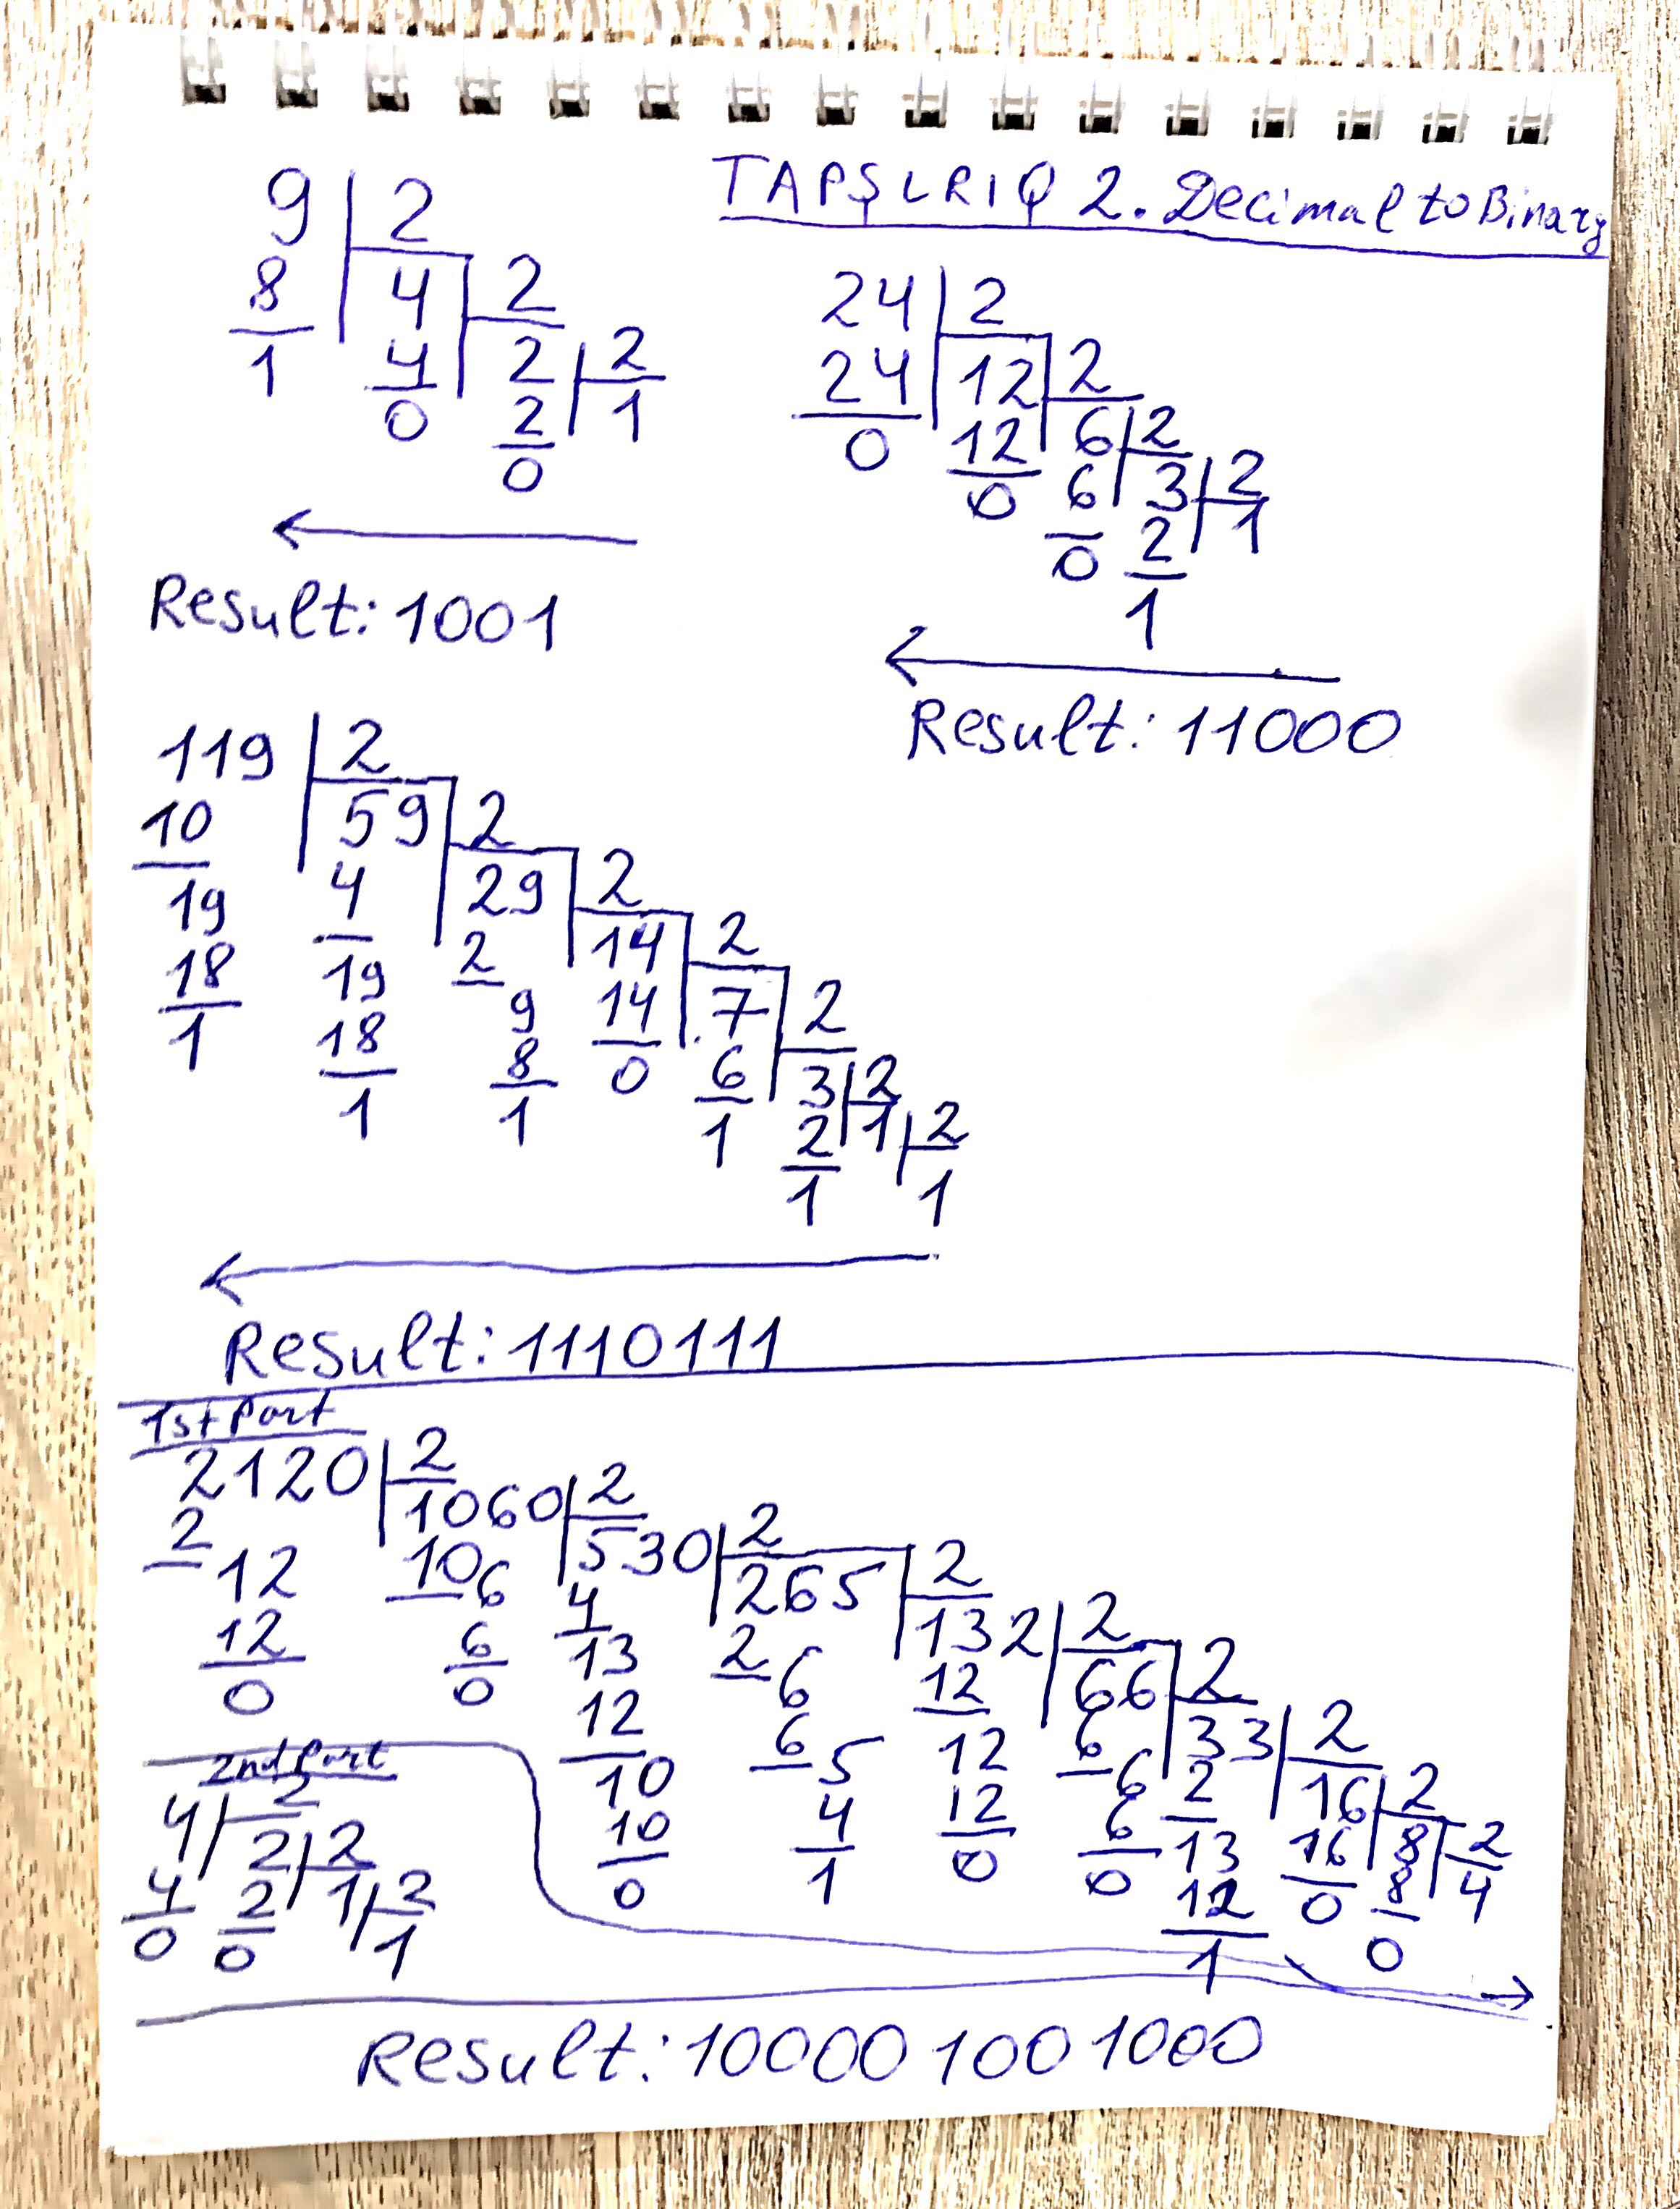 TAPŞLRIQ 2. Decimal to Binary
9 2
8 4 2
1 4 2 2
0 2 1
0
Result: 1001
24 2
24 12 2
0 12 6 2
0 6 3 2
0 2 1
1
Result: 11000
119 2
10 59 2
19 4 29 2
18 19 2 14 2
1 18 9 14 7 2
1 8 0 6 3 2
1 1 2 1 2
1 1
Result: 1110111
1st Part
2120 2
2 1060 2
12 10 6 530 2
12 6 4 265 2
0 0 13 2 6 132 2
12 6 5 12 66 2
10 4 12 6 6 33 2
10 1 12 6 2 16 2
0 0 0 13 16 8 2
12 0 8 4
1 0
2nd Part
4 2
4 2 2
0 2 1 2
0 1
Result: 100001001000